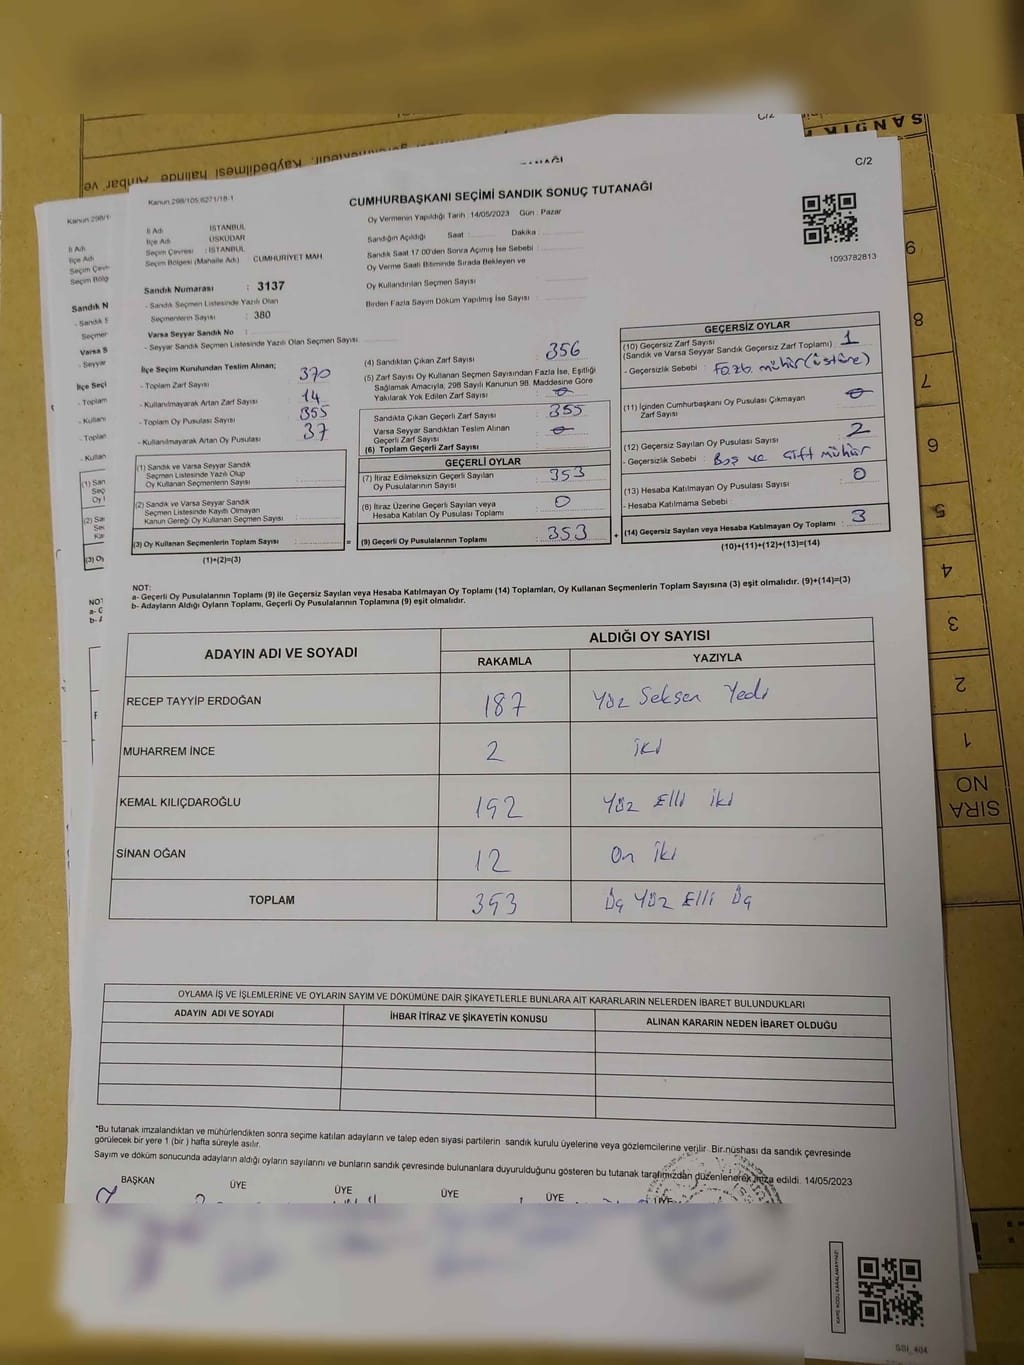 C/2
SANDIĞIN
C/2
Kanun 298/105,6271/18-1
CUMHURBAŞKANI SEÇİMİ SANDIK SONUÇ TUTANAĞI
Oy Vermenin Yapıldığı Tarih :14/05/2023 Gün : Pazar
İl Adı : İSTANBUL
İlçe Adı : ÜSKÜDAR
Seçim Çevresi : İSTANBUL
Seçim Bölgesi (Mahalle Adı) CUMHURİYET MAH.
Sandığın Açıldığı Saat : Dakika :
Sandık Saat 17.00'den Sonra Açımış İse Sebebi :
Oy Verme Saati Bitiminde Sırada Bekleyen ve
Oy Kullandırılan Seçmen Sayısı :
Birden Fazla Sayım Döküm Yapılmış İse Sayısı :
1093782813
Sandık Numarası : 3137
- Sandık Seçmen Listesinde Yazılı Olan
Seçmenlerin Sayısı : 380
Varsa Seyyar Sandık No :
- Seyyar Sandık Seçmen Listesinde Yazılı Olan Seçmen Sayısı :
İlçe Seçim Kurulundan Teslim Alınan;
- Toplam Zarf Sayısı : 370
- Kullanılmayarak Artan Zarf Sayısı : 14
- Toplam Oy Pusulası Sayısı : 355
- Kullanılmayarak Artan Oy Pusulası : 37
(1) Sandık ve Varsa Seyyar Sandık
Seçmen Listesinde Yazılı Olup
Oy Kullanan Seçmenlerin Sayısı :
(2) Sandık ve Varsa Seyyar Sandık
Seçmen Listesinde Kayıtlı Olmayan
Kanun Gereği Oy Kullanan Seçmen Sayısı :
(3) Oy Kullanan Seçmenlerin Toplam Sayısı : =
(1)+(2)=(3)
(4) Sandıktan Çıkan Zarf Sayısı : 356
(5) Zarf Sayısı Oy Kullanan Seçmen Sayısından Fazla İse, Eşitliği
Sağlamak Amacıyla, 298 Sayılı Kanunun 98. Maddesine Göre
Yakılarak Yok Edilen Zarf Sayısı : 0
Sandıkta Çıkan Geçerli Zarf Sayısı : 355
Varsa Seyyar Sandıktan Teslim Alınan
Geçerli Zarf Sayısı : 0
(6) Toplam Geçerli Zarf Sayısı
GEÇERLİ OYLAR
(7) İtiraz Edilmeksizin Geçerli Sayılan
Oy Pusulalarının Sayısı : 353
(8) İtiraz Üzerine Geçerli Sayılan veya
Hesaba Katılan Oy Pusulası Toplamı : 0
(9) Geçerli Oy Pusulalarının Toplamı : 353 +
GEÇERSİZ OYLAR
(10) Geçersiz Zarf Sayısı : 1
(Sandık ve Varsa Seyyar Sandık Geçersiz Zarf Toplamı)
- Geçersizlik Sebebi : mühür
(11) İçinden Cumhurbaşkanı Oy Pusulası Çıkmayan
Zarf Sayısı : 0
(12) Geçersiz Sayılan Oy Pusulası Sayısı : 2
- Geçersizlik Sebebi : Boş ve Çift mühür
(13) Hesaba Katılmayan Oy Pusulası Sayısı : 0
- Hesaba Katılmama Sebebi :
(14) Geçersiz Sayılan veya Hesaba Katılmayan Oy Toplamı : 3
(10)+(11)+(12)+(13)=(14)
NOT:
a- Geçerli Oy Pusulalarının Toplamı (9) ile Geçersiz Sayılan veya Hesaba Katılmayan Oy Toplamı (14) Toplamları, Oy Kullanan Seçmenlerin Toplam Sayısına (3) eşit olmalıdır. (9)+(14)=(3)
b- Adayların Aldığı Oyların Toplamı, Geçerli Oy Pusulalarının Toplamına (9) eşit olmalıdır.
ADAYIN ADI VE SOYADI ALDIĞI OY SAYISI
RAKAMLA YAZIYLA
RECEP TAYYİP ERDOĞAN 187 Yüz Seksen Yedi
MUHARREM İNCE 2 İki
KEMAL KILIÇDAROĞLU 152 Yüz Elli İki
SİNAN OĞAN 12 On İki
TOPLAM 353 Üç Yüz Elli Üç
OYLAMA İŞ VE İŞLEMLERİNE VE OYLARIN SAYIM VE DÖKÜMÜNE DAİR ŞİKAYETLERLE BUNLARA AİT KARARLARIN NELERDEN İBARET BULUNDUKLARI
ADAYIN ADI VE SOYADI İHBAR İTİRAZ VE ŞİKAYETİN KONUSU ALINAN KARARIN NEDEN İBARET OLDUĞU
*Bu tutanak imzalandıktan ve mühürlendikten sonra seçime katılan adayların ve talep eden siyasi partilerin sandık kurulu üyelerine veya gözlemcilerine verilir. Bir nüshası da sandık çevresinde
görülecek bir yere 1 (bir ) hafta süreyle asılır.
Sayım ve döküm sonucunda adayların aldığı oyların sayılarını ve bunların sandık çevresinde bulunanlara duyurulduğunu gösteren bu tutanak tarafımızdan düzenlenerek imza edildi. 14/05/2023
BAŞKAN ÜYE ÜYE ÜYE ÜYE ÜYE
9
8
7
6
5
4
3
2
1
SIRA
NO
SSI_404